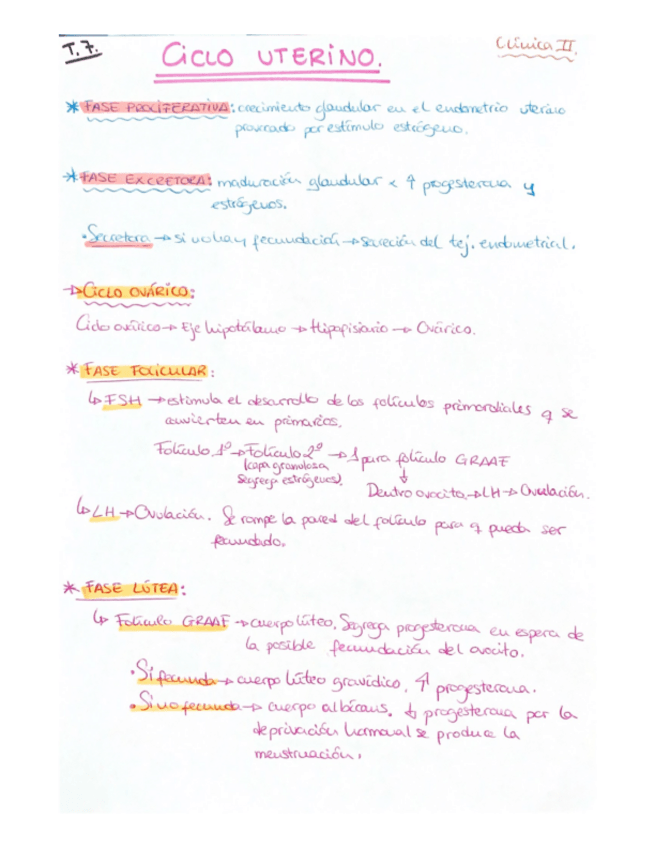 T.7.
CICLO UTERINO.
Clínica II.
* FASE PROLIFERATIVA: crecimiento glandular en el endometrio uterino
provocado por estímulo estrógeno.
* FASE EXCRETORA: maduración glandular < ↑ progesterona y
estrógenos.
• Secretora → si no hay fecundación → secreción del tej. endometrial.
→ CICLO OVÁRICO:
Ciclo ovárico → Eje hipotálamo → Hipofisiario → Ovárico.
* FASE FOLICULAR:
↳ FSH → estimula el desarrollo de los folículos primordiales q se
convierten en primarios.
Folículo 1º → Folículo 2º → 1 para folículo GRAAF
(capa granulosa
Segrega estrógenos).
↓
Dentro ovocito → LH → Ovulación.
↳ LH → Ovulación. Se rompe la pared del folículo para q pueda ser
fecundado.
* FASE LÚTEA:
↳ Folículo GRAAF → cuerpo lúteo, Segrega progesterona en espera de
la posible fecundación del ovocito.
• Si fecunda → cuerpo lúteo gravídico, ↑ progesterona.
• Si no fecunda → cuerpo albicans. ↓ progesterona por la
deprivación hormonal se produce la
menstruación.